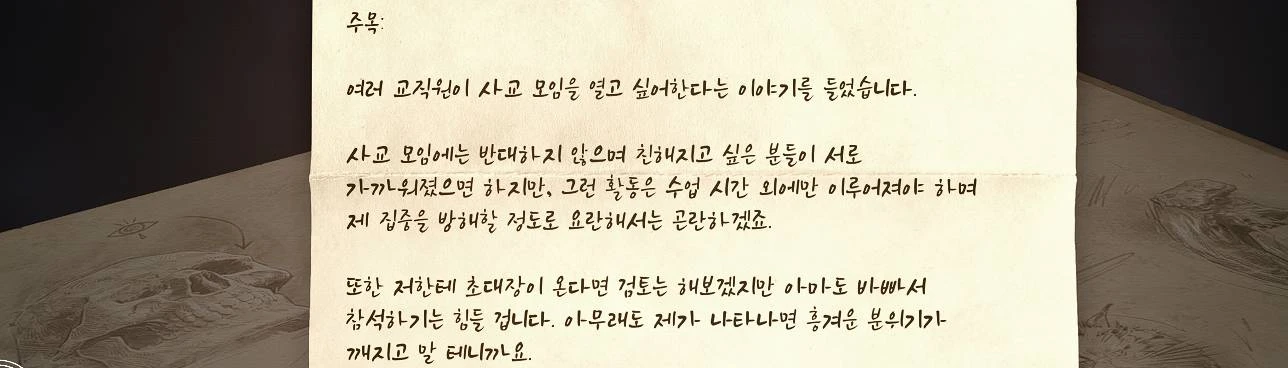 주목:
여러 교직원이 사교 모임을 열고 싶어한다는 이야기를 들었습니다.
사교 모임에는 반대하지 않으며 친해지고 싶은 분들이 서로
가까워졌으면 하지만, 그런 활동은 수업 시간 외에만 이루어져야 하며
제 집중을 방해할 정도로 요란해서는 곤란하겠죠.
또한 저한테 초대장이 온다면 검토는 해보겠지만 아마도 바빠서
참석하기는 힘들 겁니다. 아무래도 제가 나타나면 흥겨운 분위기가
깨지고 말 테니까요.